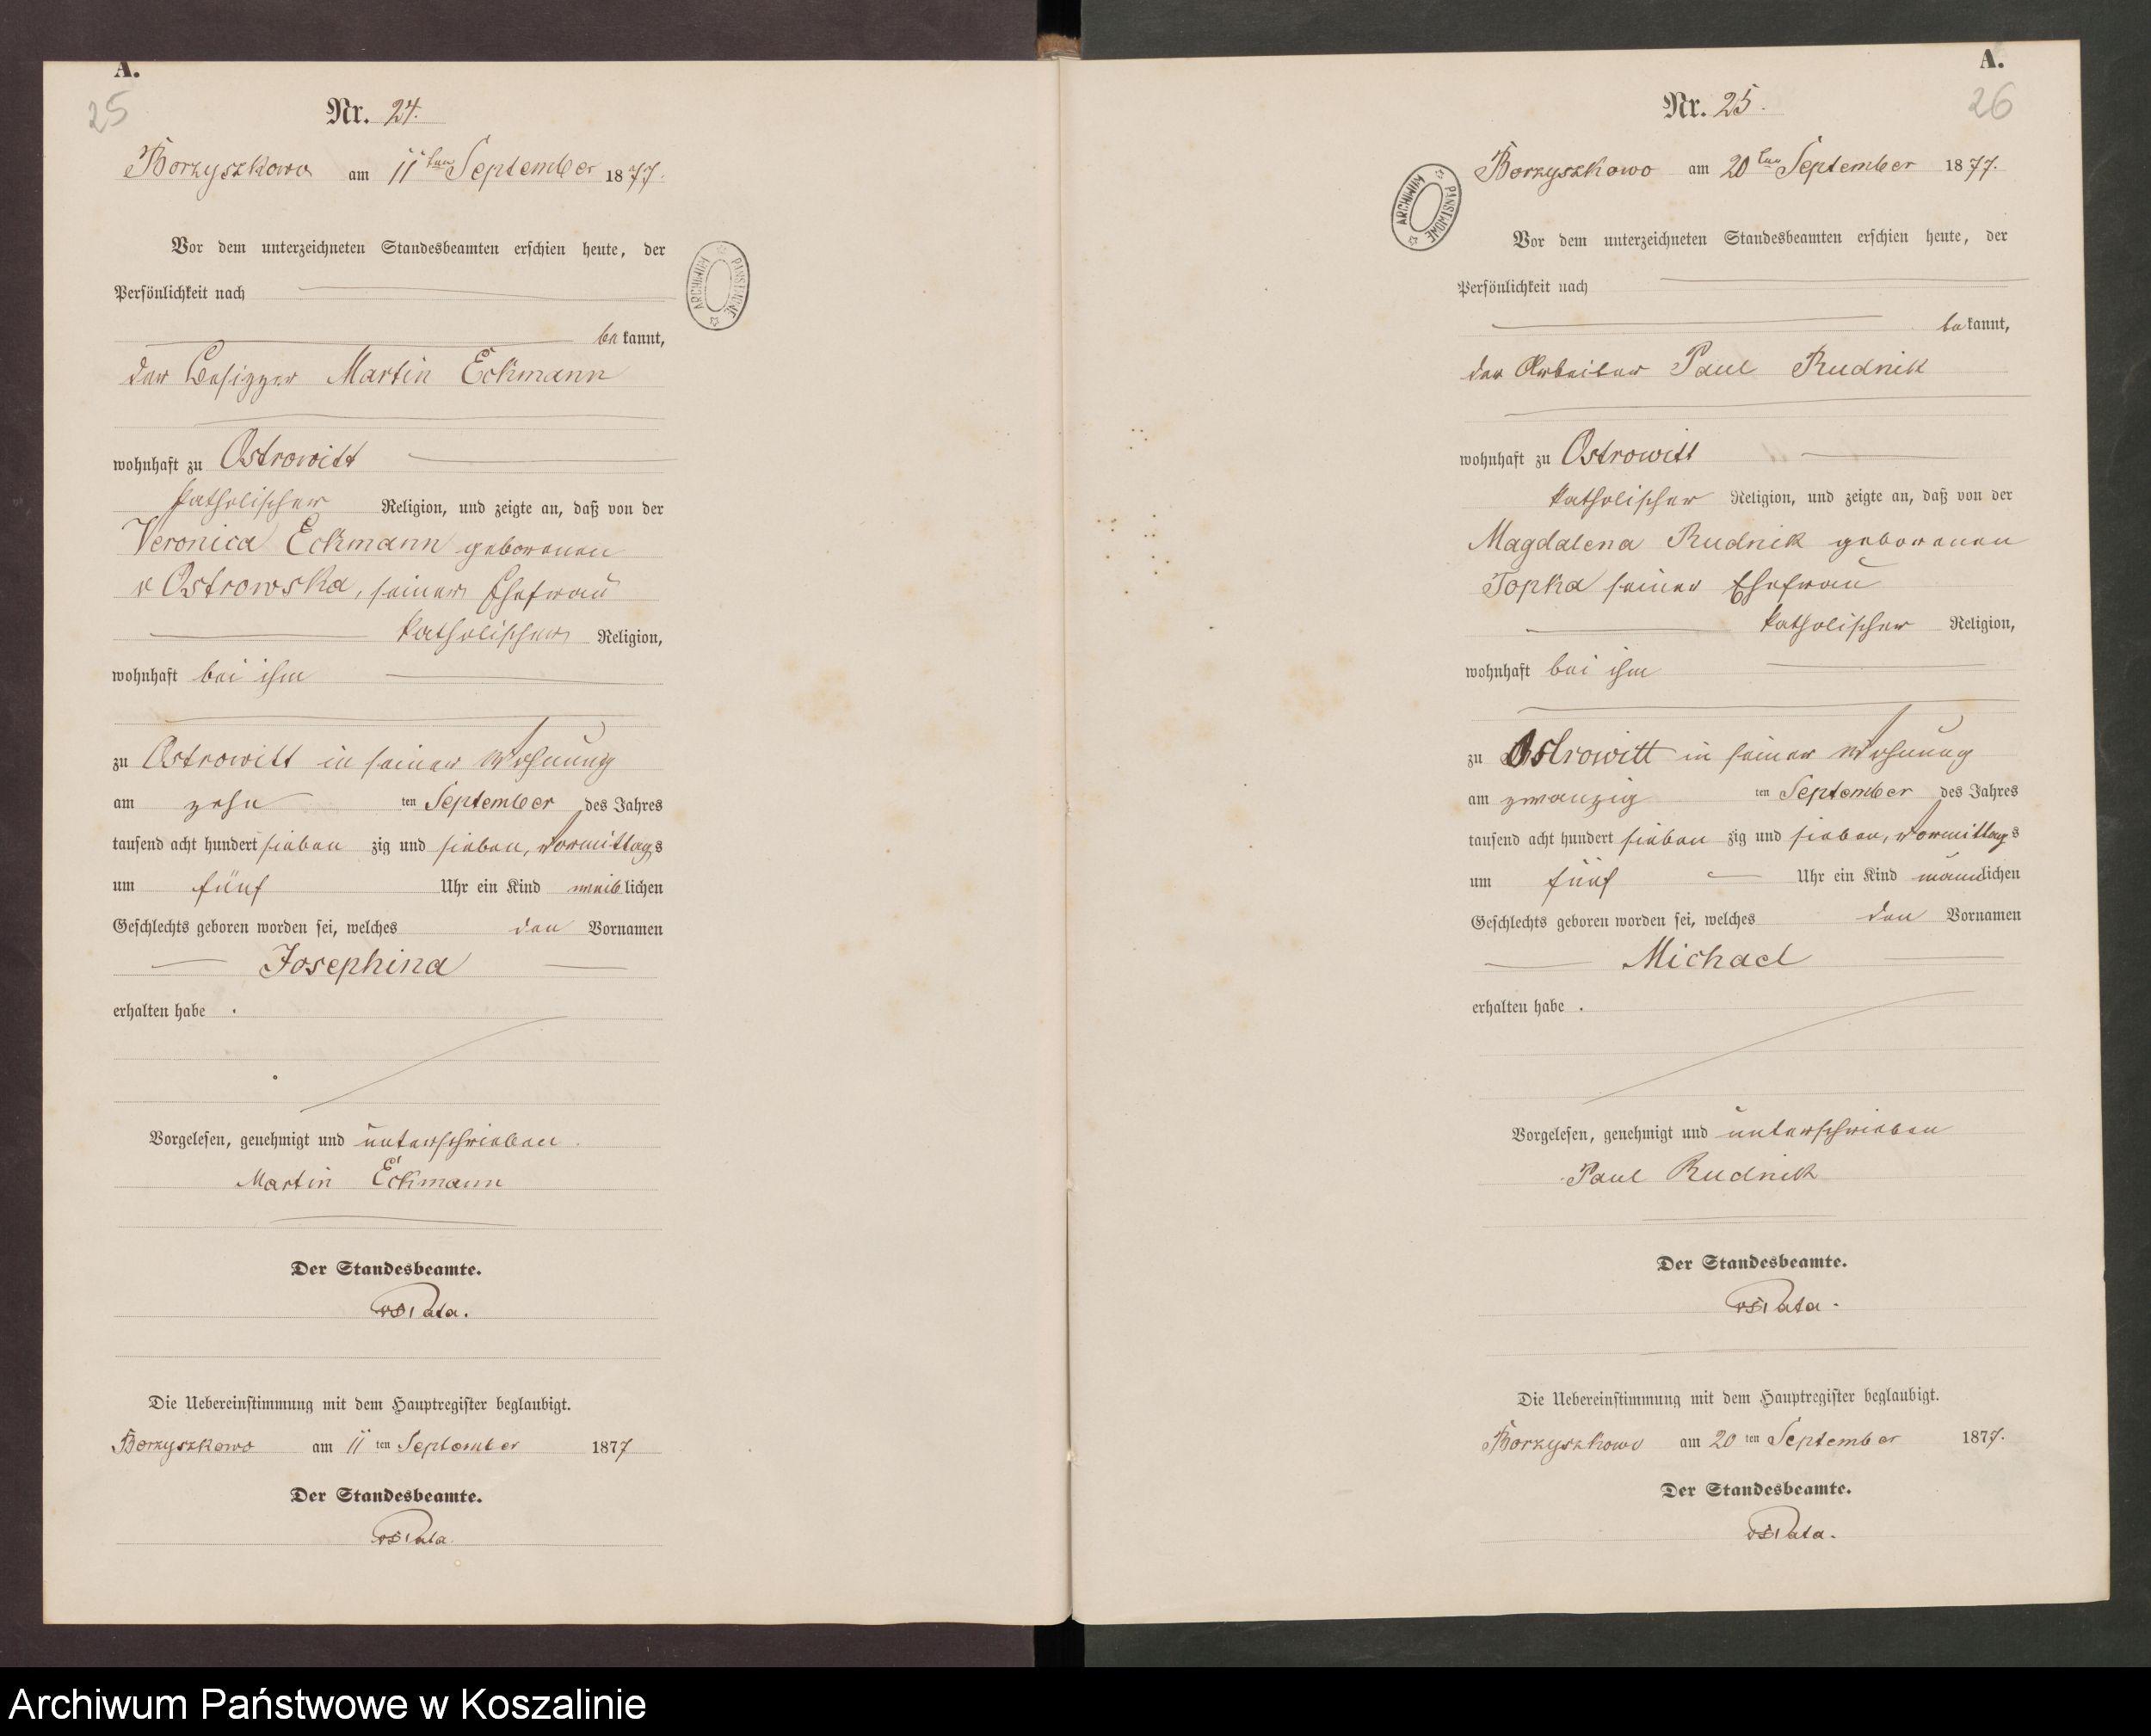 A.
25
Nr. 24.
Borzyszkowo am 11ten September 1877.
Vor dem unterzeichneten Standesbeamten erschien heute, der
Persönlichkeit nach
bekannt,
der Besitzer Martin Eckmann
wohnhaft zu Ostrowitt
katholischer Religion, und zeigte an, daß von der
Veronica Eckmann geborenen
v Ostrowska, seiner Ehefrau
katholischer Religion,
wohnhaft bei ihm
zu Ostrowitt in seiner Wohnung
am zehn ten September des Jahres
tausend acht hundert sieben zig und sieben, Vormittags
um fünf Uhr ein Kind weiblichen
Geschlechts geboren worden sei, welches den Vornamen
Josephina
erhalten habe .
Vorgelesen, genehmigt und unterschrieben.
Martin Eckmann
Der Standesbeamte.
Die Uebereinstimmung mit dem Hauptregister beglaubigt.
Borzyszkowo am 11 ten September 1877
Der Standesbeamte.
ARCHIWUM PAŃSTWOWE
A.
26
Nr. 25.
Borzyszkowo am 20ten September 1877.
Vor dem unterzeichneten Standesbeamten erschien heute, der
Persönlichkeit nach
bekannt,
der Arbeiter Paul Rudnik
wohnhaft zu Ostrowitt
katholischer Religion, und zeigte an, daß von der
Magdalena Rudnik geborenen
Topka seiner Ehefrau
katholischer Religion,
wohnhaft bei ihm
zu Ostrowitt in seiner Wohnung
am zwanzig ten September des Jahres
tausend acht hundert sieben zig und sieben, Vormittags
um fünf Uhr ein Kind männlichen
Geschlechts geboren worden sei, welches den Vornamen
Michael
erhalten habe .
Vorgelesen, genehmigt und unterschrieben
Paul Rudnik
Der Standesbeamte.
Die Uebereinstimmung mit dem Hauptregister beglaubigt.
Borzyszkowo am 20 ten September 1877.
Der Standesbeamte.
ARCHIWUM PAŃSTWOWE
Archiwum Państwowe w Koszalinie